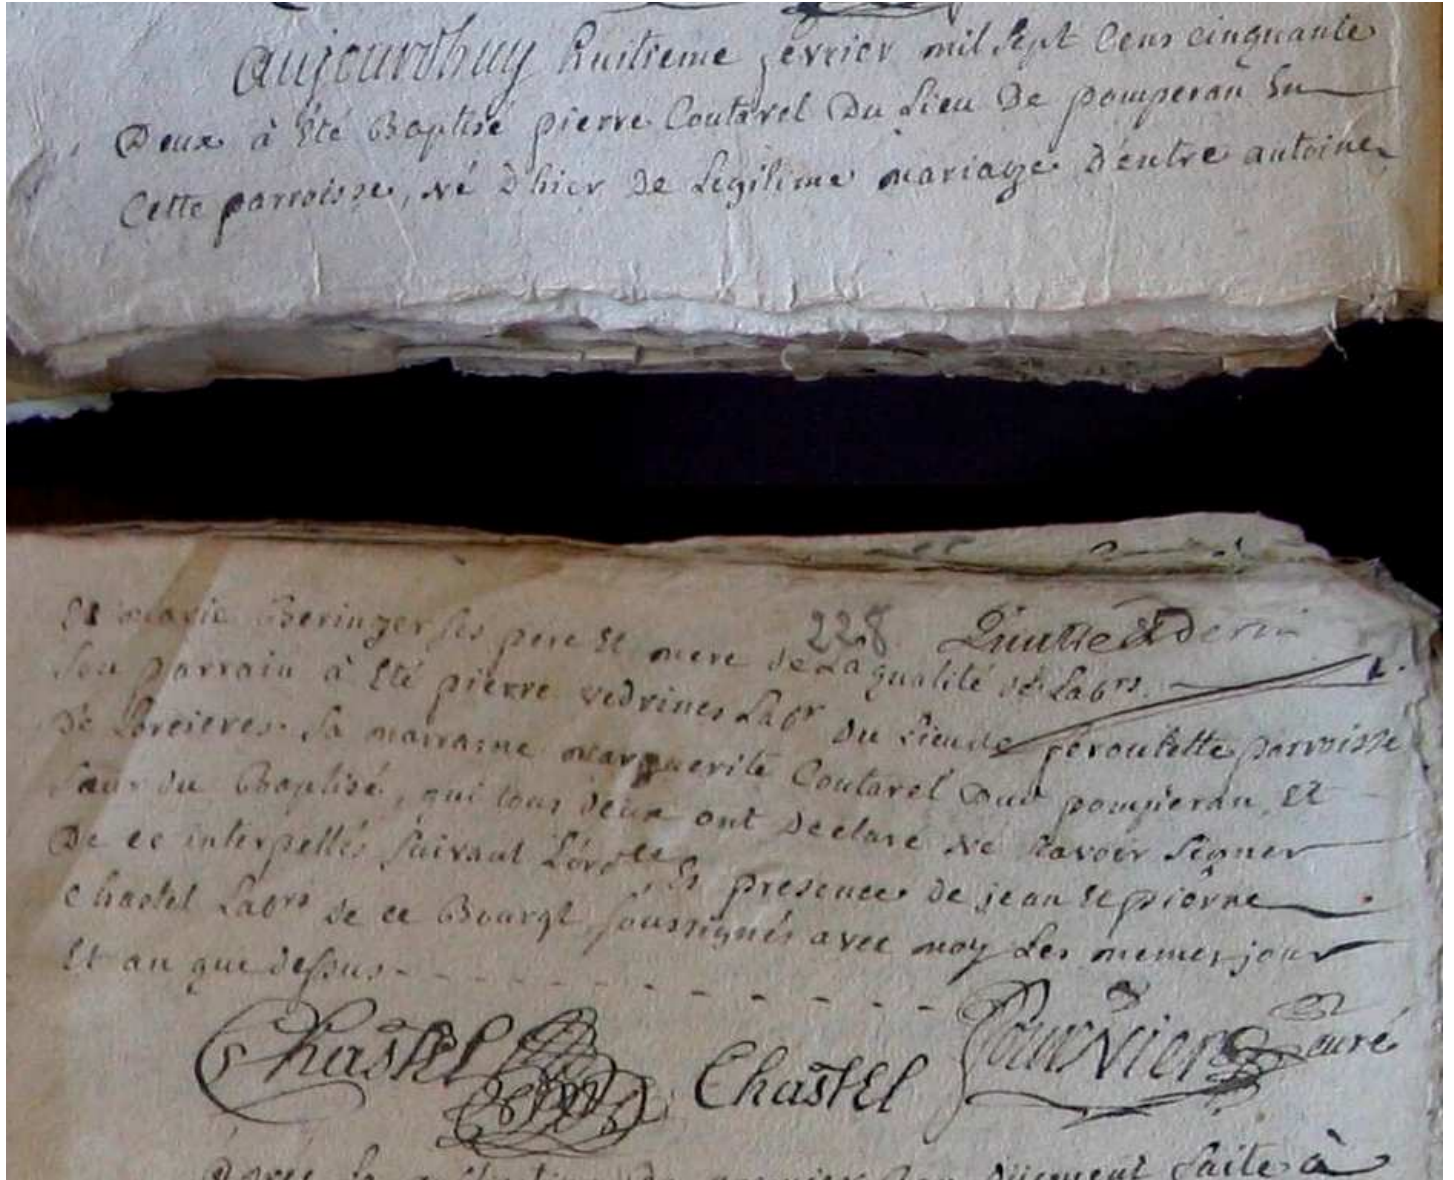 aujourdhuy huitieme fevrier mil sept cens cinquante
Deux à été Baptisé pierre Coutarel Du Lieu De pomperan En
Cette parroisse, né D'hier De Legitime mariage D'entre antoine
228
Et marie Beringer ses pere Et mere De La qualité de Labrs.
Son parrain à Eté pierre vedrines Labr Du Lieu de feroulette parroisse
De Lorcieres. Sa marraine marguerite Coutarel Dud pompieran, Et
Sœur du Baptisé, qui tous Deux ont Declaré né savoir signer
De ce interpellés suivant L'ordce, En presence de jean Et pierre
Chastel Labrs de ce Bourgt, soussignés avec moy Les memes jour
Et an que dessus
Chastel Chastel Fournier curé
faite à